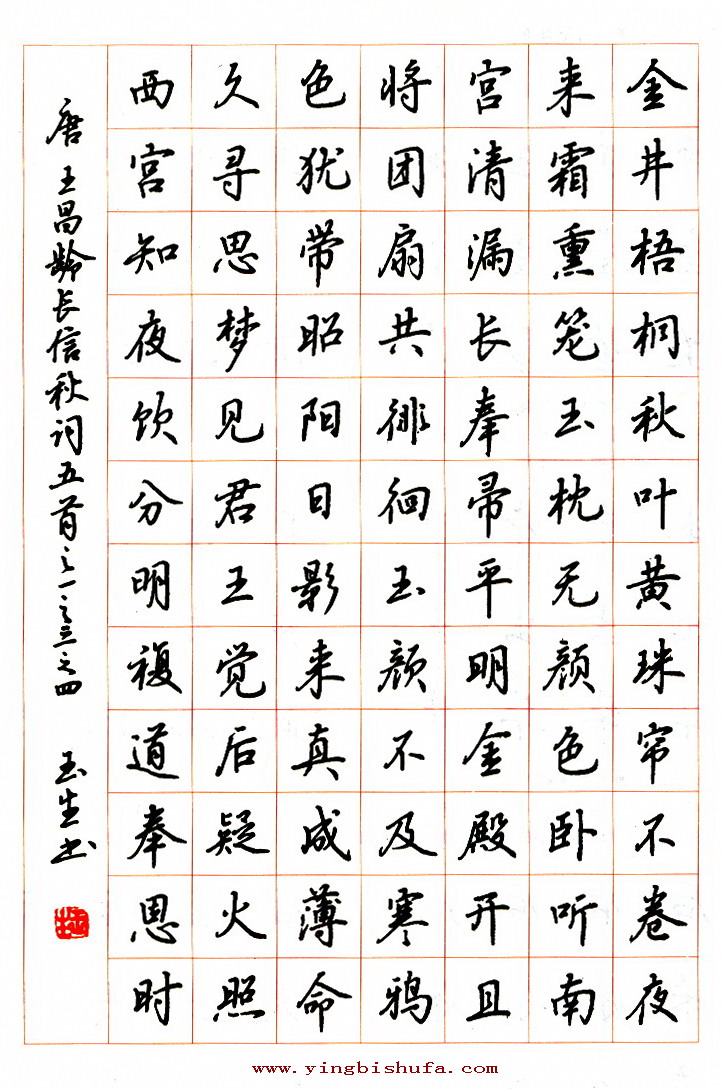 金井梧桐秋叶黄珠帘不卷夜
来霜熏笼玉枕无颜色卧听南
宫清漏长奉帚平明金殿开且
将团扇共徘徊玉颜不及寒鸦
色犹带昭阳日影来真成薄命
久寻思梦见君王觉后疑火照
西宫知夜饮分明複道奉恩时
唐王昌龄长信秋词五首之一之三之四 玉生书
www.yingbishufa.com